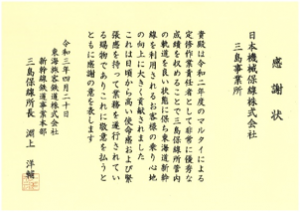 感謝状
日本機械保線株式会社
三島事業所
貴殿は令和二年度のマルタイによる
定修作業責任者として非常に優秀な
成績を収めることで三島保線所管内
の軌道を良い状態に保ち東海道新幹
線を利用されるお客様の乗り心地
の向上に大きく貢献されました
これは日頃から高い使命感および緊
張感を持って業務を遂行されてい
る賜物でありこれに敬意を払うと
ともに感謝の意を表します
令和三年四月二十日
東海旅客鉄道株式会社
新幹線鉄道事業本部
三島保線所長 渕上 洋輔